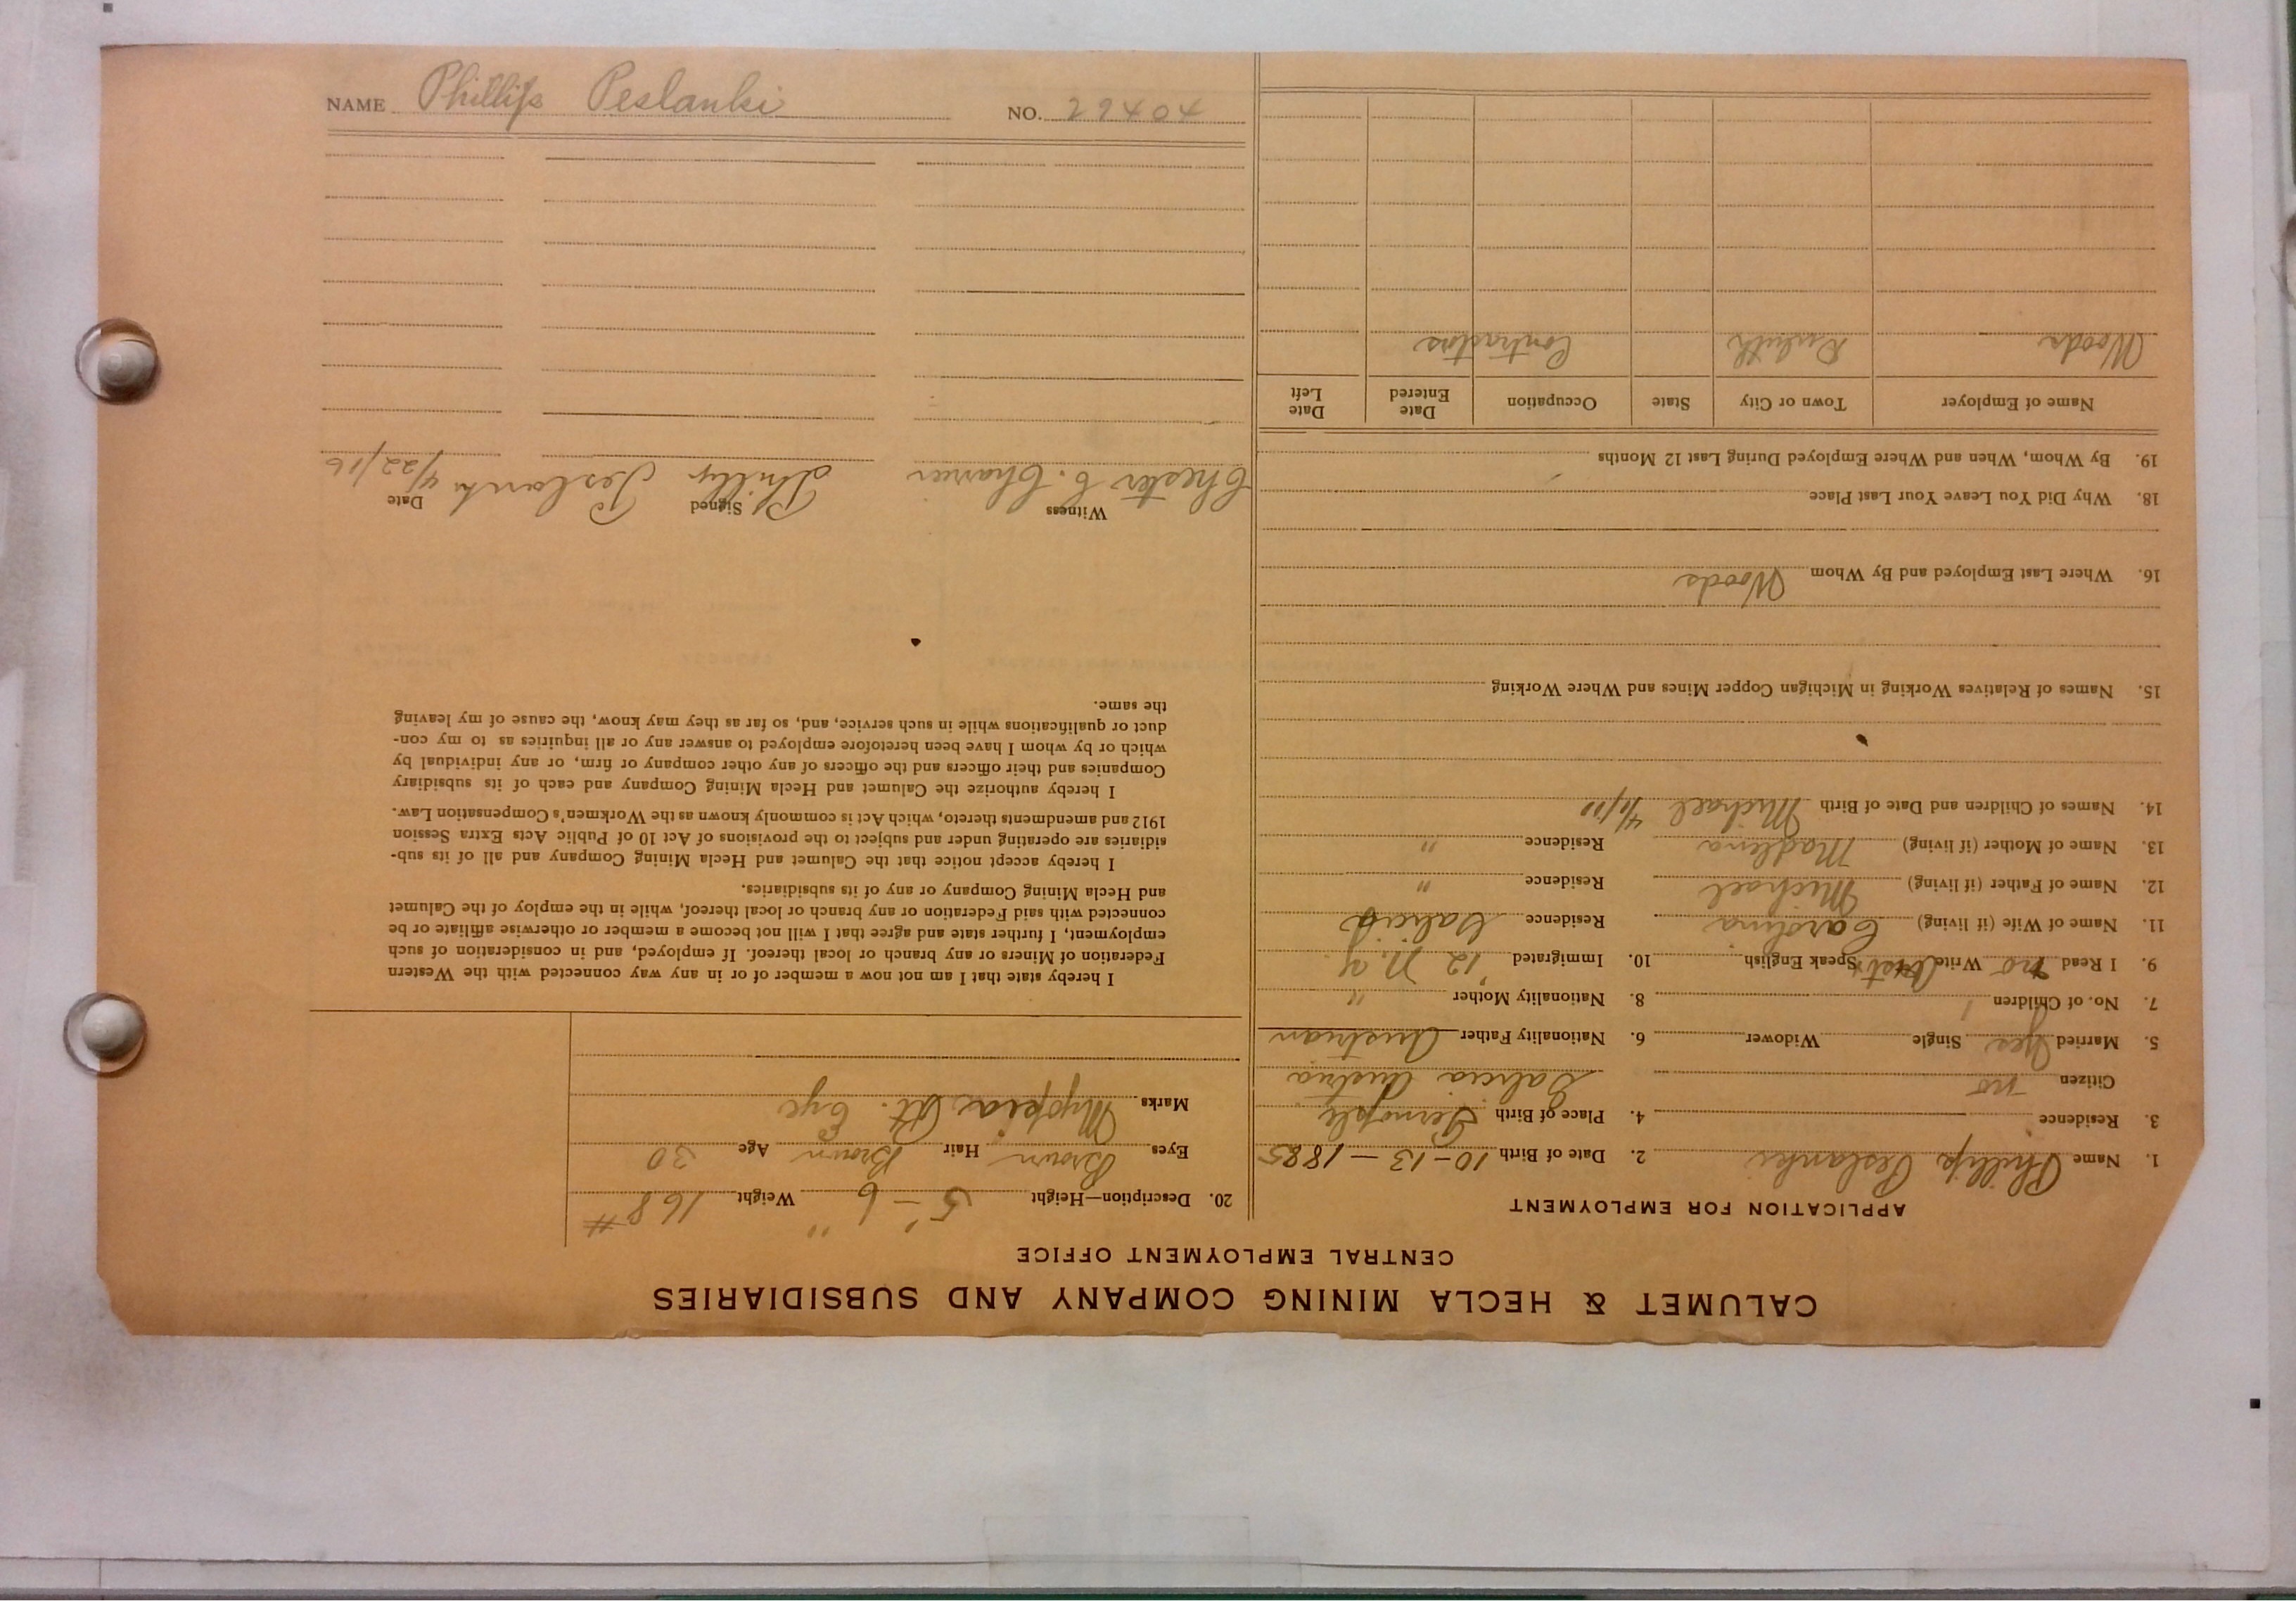 NAME Phillip Peslanki NO. 29404
CALUMET & HECLA MINING COMPANY AND SUBSIDIARIES
CENTRAL EMPLOYMENT OFFICE
APPLICATION FOR EMPLOYMENT
1. Name Phillip Peslanki 2. Date of Birth 10-13-1885
3. Residence 4. Place of Birth
Citizen no Galicia Austria
5. Married Yes Single Widower 6. Nationality Father Austrian
7. No. of Children 1 8. Nationality Mother "
9. I Read no Write Speak English 10. Immigrated '12 N.Y.
11. Name of Wife (if living) Carolina Residence Galicia
12. Name of Father (if living) Michael Residence "
13. Name of Mother (if living) Madlena Residence "
14. Names of Children and Date of Birth Michael
15. Names of Relatives Working in Michigan Copper Mines and Where Working
16. Where Last Employed and By Whom Woods
18. Why Did You Leave Your Last Place
19. By Whom, When and Where Employed During Last 12 Months
Name of Employer Town or City State Occupation Date Entered Date Left
Woods Duluth Contractors
20. Description—Height 5'-6" Weight 168#
Eyes Brown Hair Brown Age 30
Marks Myopia Rt. Eye
I hereby state that I am not now a member of or in any way connected with the Western
Federation of Miners or any branch or local thereof. If employed, and in consideration of such
employment, I further state and agree that I will not become a member or otherwise affiliate or be
connected with said Federation or any branch or local thereof, while in the employ of the Calumet
and Hecla Mining Company or any of its subsidiaries.
I hereby accept notice that the Calumet and Hecla Mining Company and all of its sub-
sidiaries are operating under and subject to the provisions of Act 10 of Public Acts Extra Session
1912 and amendments thereto, which Act is commonly known as the Workmen's Compensation Law.
I hereby authorize the Calumet and Hecla Mining Company and each of its subsidiary
Companies and their officers and the officers of any other company or firm, or any individual by
which or by whom I have been heretofore employed to answer any or all inquiries as to my con-
duct or qualifications while in such service, and, so far as they may know, the cause of my leaving
the same.
Witness Signed Date
Chester C. Phillip Peslanki 4/22/16